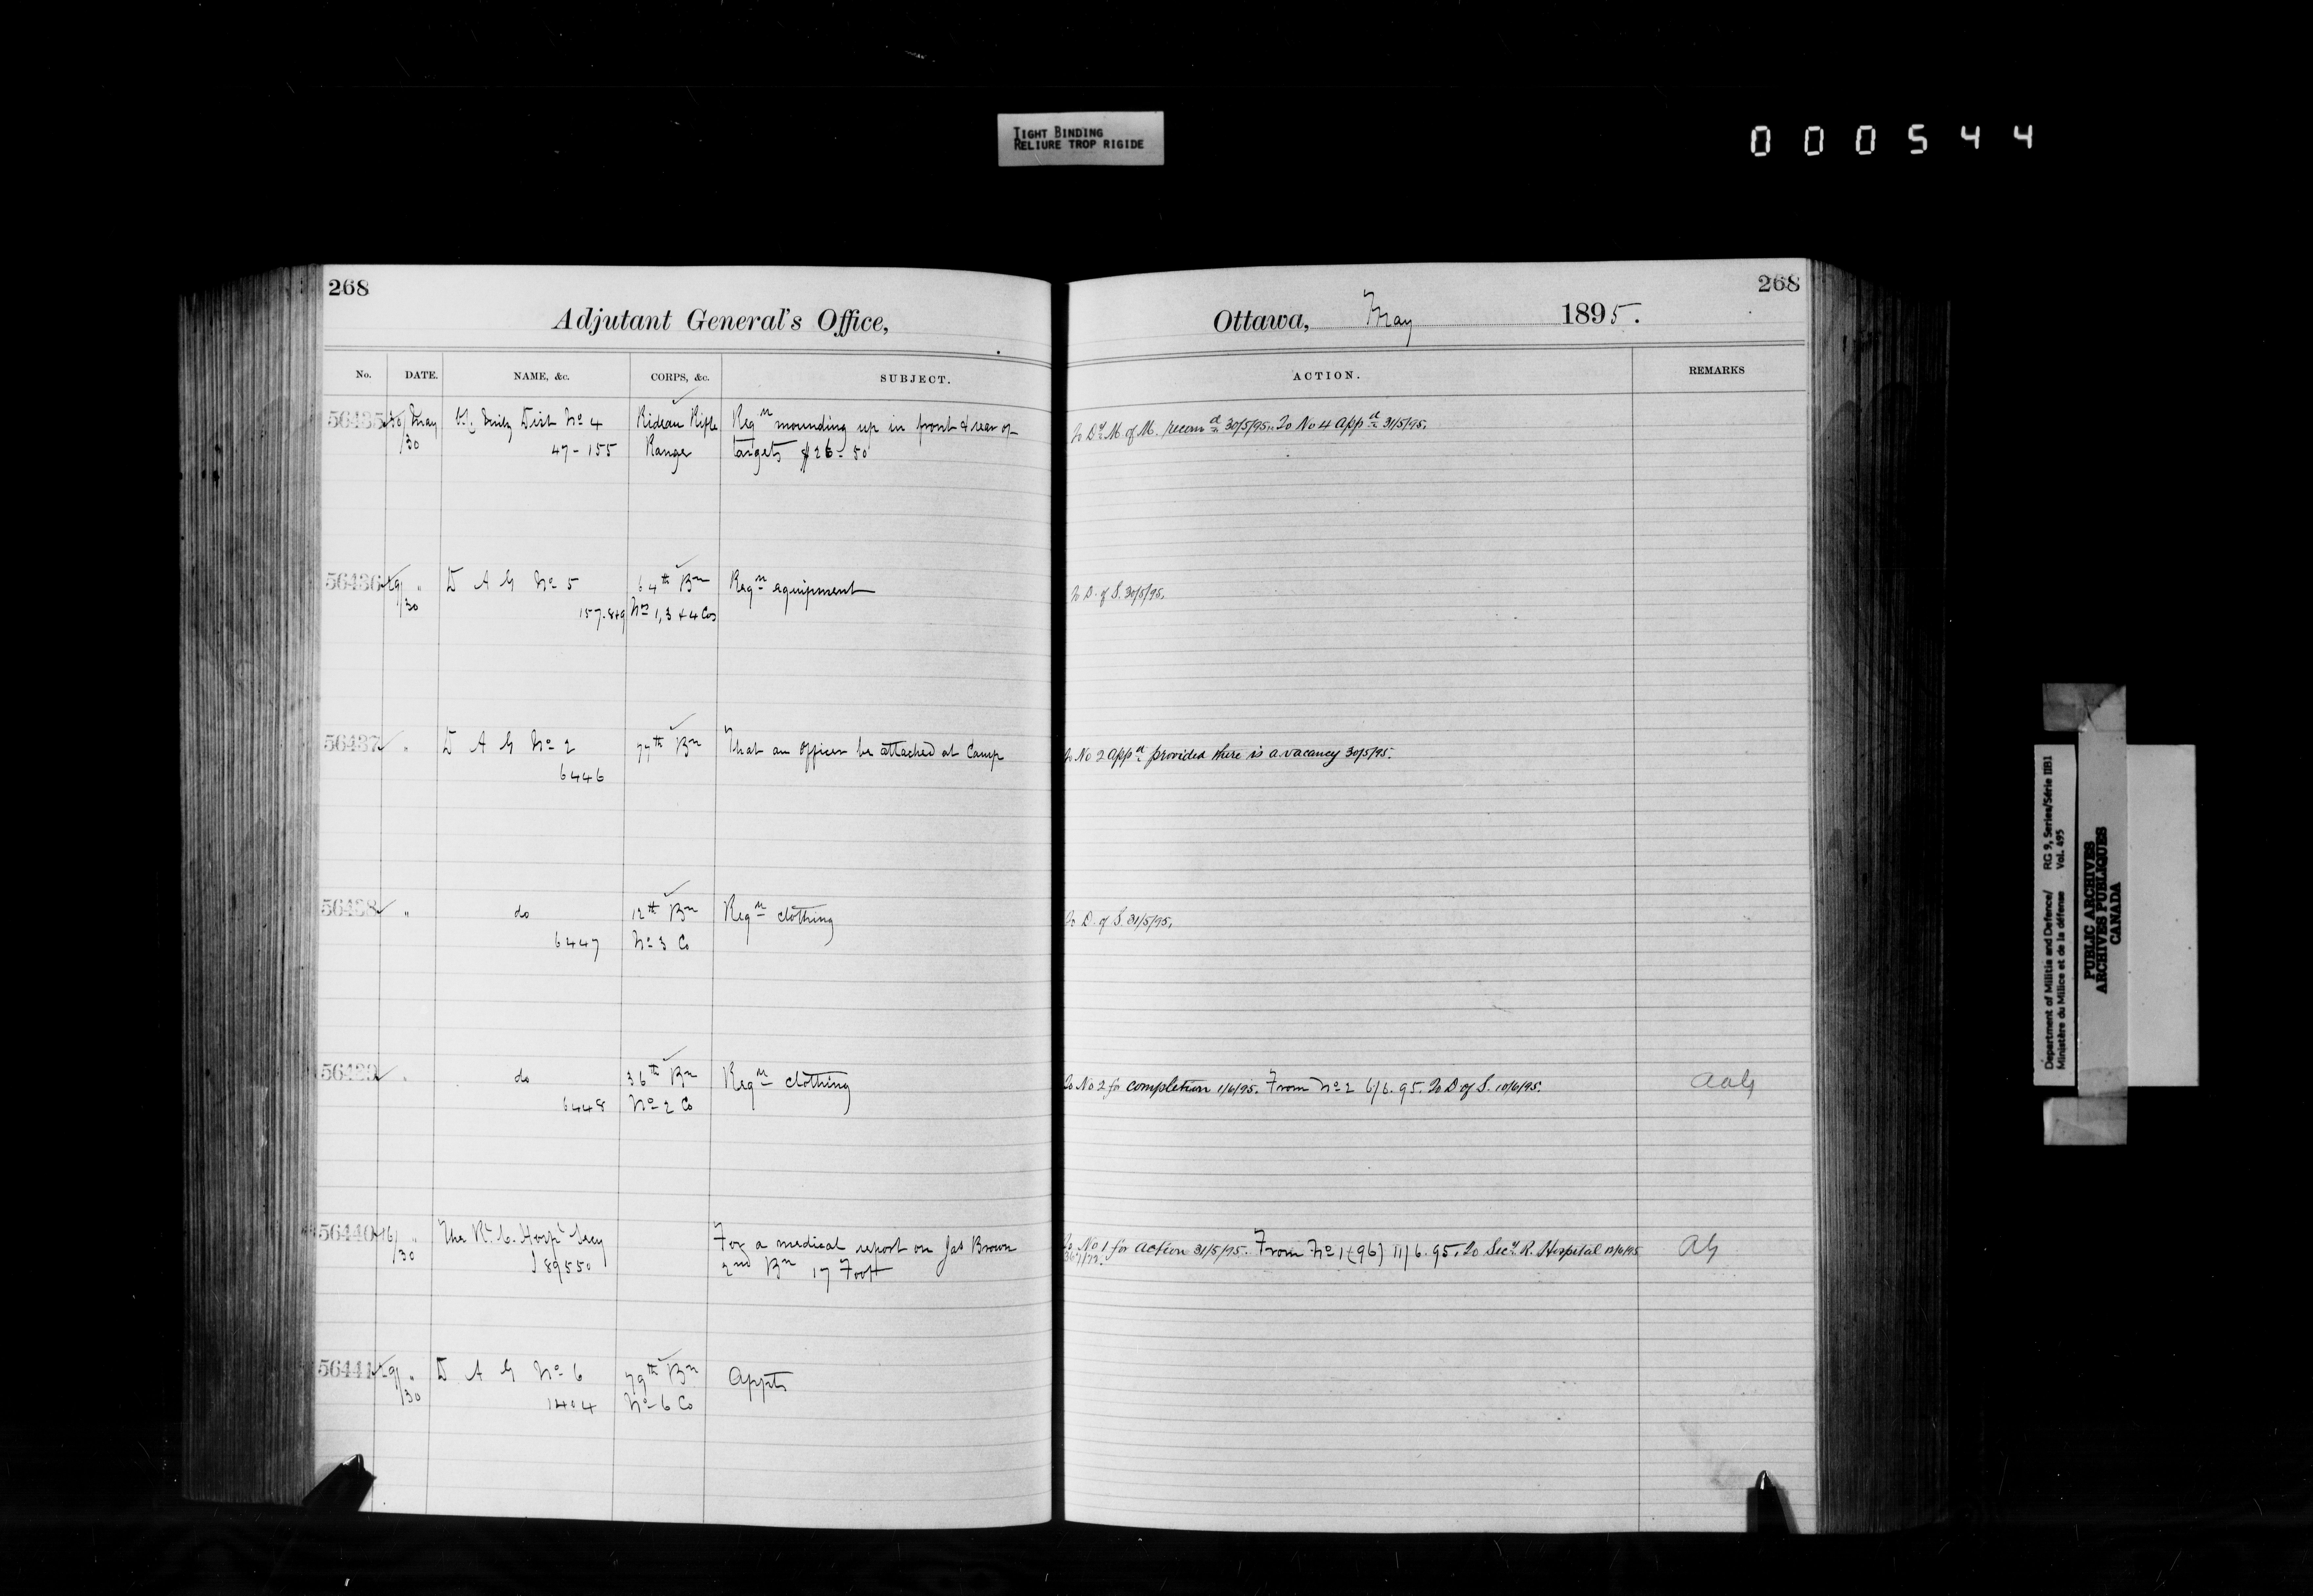 TIGHT BINDING
RELIURE TROP RIGIDE
000544
268
Adjutant General's Office,
No. DATE. NAME, &c. CORPS, &c. SUBJECT.
56435 30/ May Dist No 4 Rideau Rifle Reqn mounding up in front & rear of
/30 47-155 Range targets $26-50
56436 29/ " D A G No 5 64th Bn Reqn equipment
/30 157.849 Nos 1, 3 & 4 Cos
56437 " D A G No 2 77th Bn That an officer be attached at Camp
6446
56438 " do 12th Bn Reqn clothing
6447 No 3 Co
56439 " do 36th Bn Reqn clothing
6448 No 2 Co
56440 16/ " The Rl C. Hospl Secy For a medical report on Jas Brown
/30 89550 2nd Bn 17 Foot
56441 29/ " D A G No 6 79th Bn Appts
/30 1404 No 6 Co
268
Ottawa, May 1895.
ACTION. REMARKS
To Dy M. of M. recomd 30/5/95. To No 4 Appd 31/5/95.
To D. of S. 30/5/95.
To No 2 appd provided there is a vacancy 30/5/95.
To D. of S. 31/5/95.
To No 2 for completion 1/6/95. From No 2 6/6.95. To D of S. 10/6/95. AAG
To No 1 for action 31/5/95. From No 1 (96) 11/6.95. To Secy. R. Hospital 12/6/95 AG
Department of Militia and Defence/ RG 9, Series/Série IIB1
Ministère du Milice et de la défense Vol. 495
PUBLIC ARCHIVES
ARCHIVES PUBLIQUES
CANADA